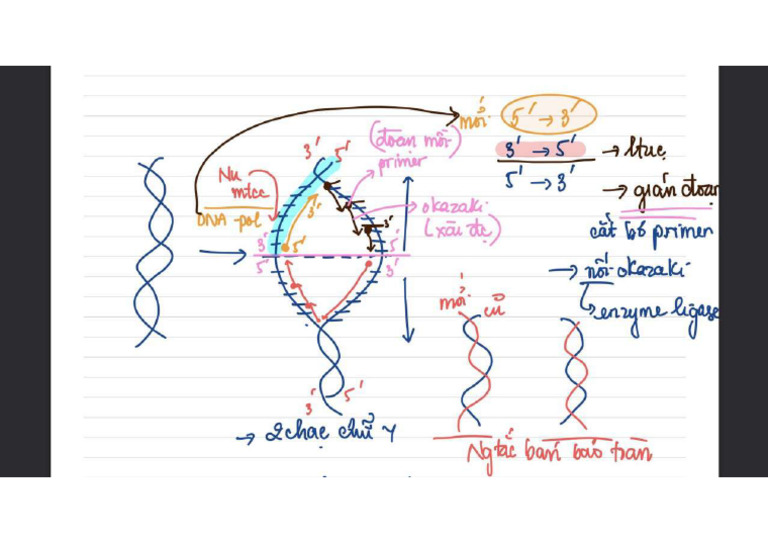 mới 5' → 3'
3' → 5' → ltục
5' → 3' → gián đoạn
cắt bỏ primer
→ nối okazaki
↳ enzyme ligase
3' 5'
(đoạn mồi)
primer
Nu
mtcc
DNA-pol
3'
okazaki
(xấu đc)
3'
3' 5' 5'
5' 3'
mới cũ
3' 5'
→ 2 chạc chữ Y
Ng tắc bán bảo toàn